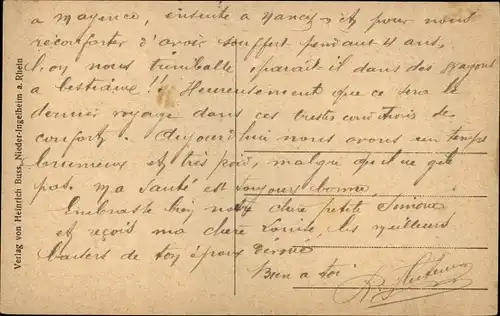 a Mayence, ensuite a Nancy, et pour nous
réconforter d'avoir souffert pendant 4 ans,
l'on nous trimballe parait-il dans des wagons
a bestiaux!! Heureusement que ce sera le
dernier voyage dans ces tristes conditions de
confort. Aujourd'hui nous avons un temps
brumeux et très froid, malgré qu'il ne gèle
pas. Ma santé est toujours bonne
Embrasse bien notre chère petite Simone
et reçois ma chère Louise, les meilleurs
baisers de ton époux
Bien a toi
Verlag von Heinrich Buss, Nieder-Ingelheim a. Rhein